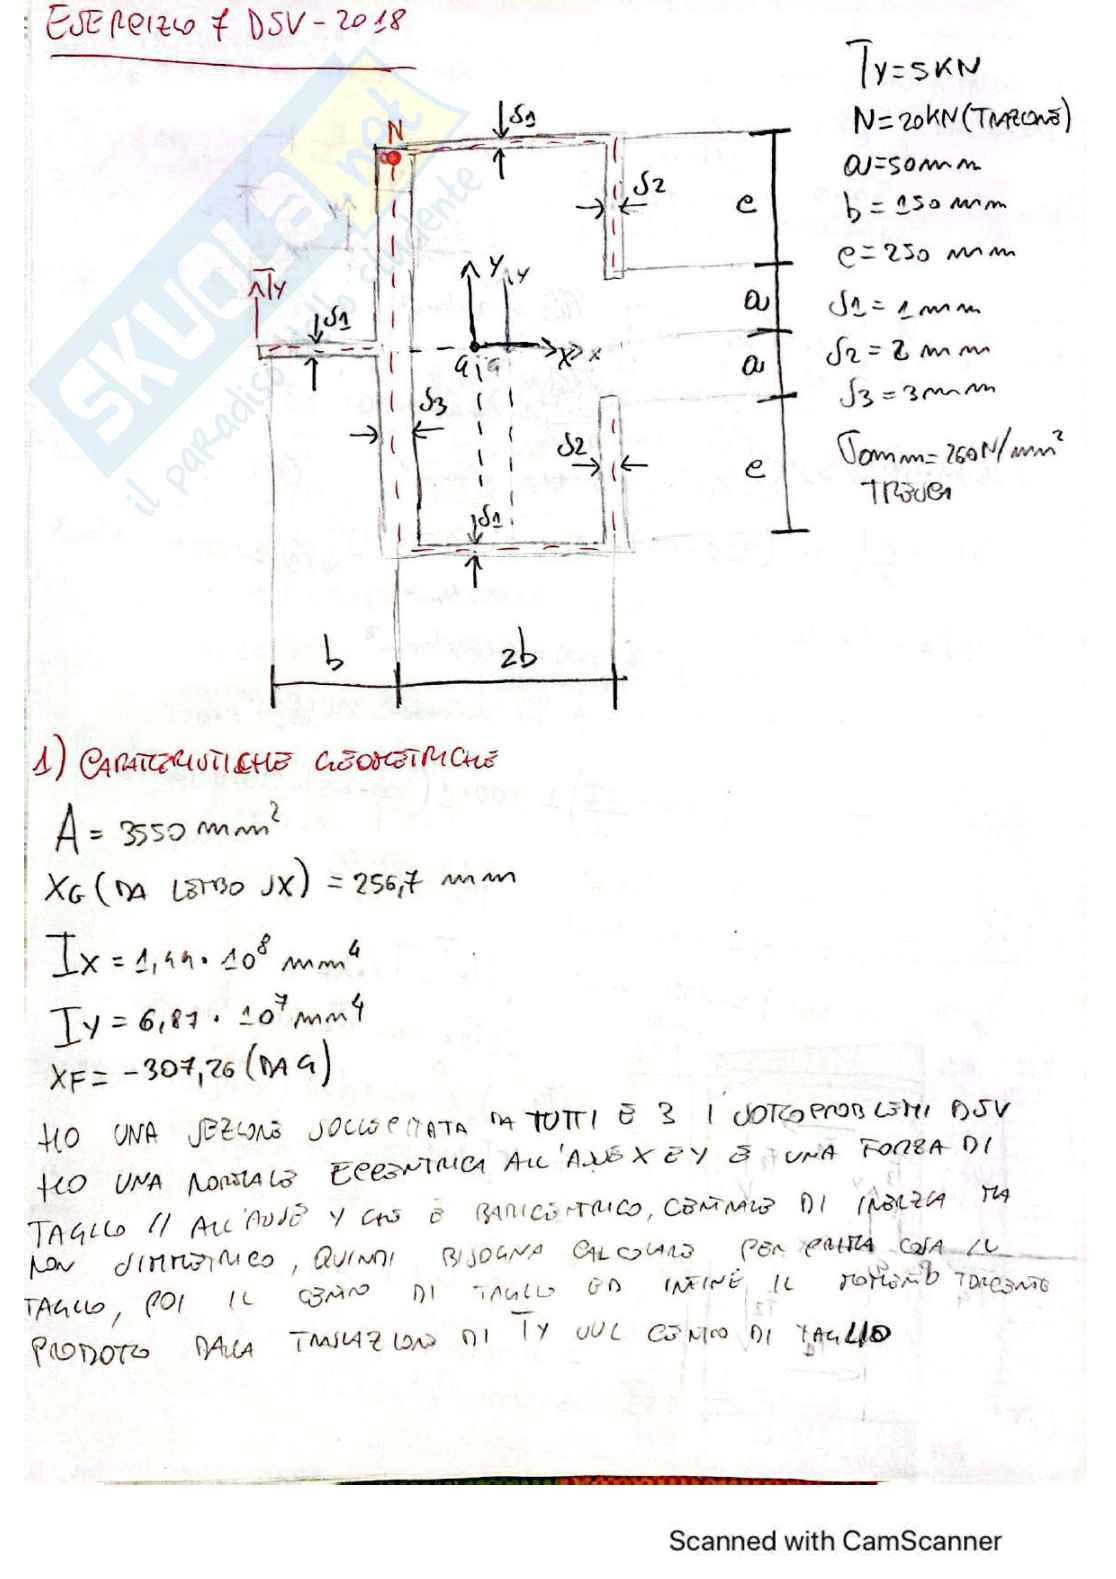 ESERCIZIO 7 DSV-2018
Ty=5KN
N=20KN(TRAZIONE)
a=50mm
b=150mm
e=250mm
δ1=1mm
δ2=2mm
δ3=3mm
σamm=260N/mm²
TRESCA
N
δ1
δ2
e
Ty
δ1
Y
Y
a
G
G
X
x
a
δ3
δ2
e
δ1
b
2b
SKUOLA.not
il paradiso dello studente
1) CARATTERISTICHE GEOMETRICHE
A = 3550 mm²
XG (DA LEMBO SX) = 256,7 mm
Ix = 1,44·10⁸ mm⁴
Iy = 6,87·10⁷ mm⁴
XF = -307,26 (DA G)
HO UNA SEZIONE SOLLECITATA DA TUTTI E 3 I SOTTOPROBLEMI DSV
HO UNA NORMALE ECCENTRICA ALL'ASSE X E Y E UNA FORZA DI
TAGLIO // ALL'ASSE Y CHE È BARICENTRICO, CENTRALE DI INERZIA MA
NON SIMMETRICO, QUINDI BISOGNA CALCOLARE PER PRIMA COSA IL
TAGLIO, POI IL CENTRO DI TAGLIO ED INFINE IL MOMENTO TORCENTE
PRODOTO DALLA TRASLAZIONE DI Ty SUL CENTRO DI TAGLIO
Scanned with CamScanner